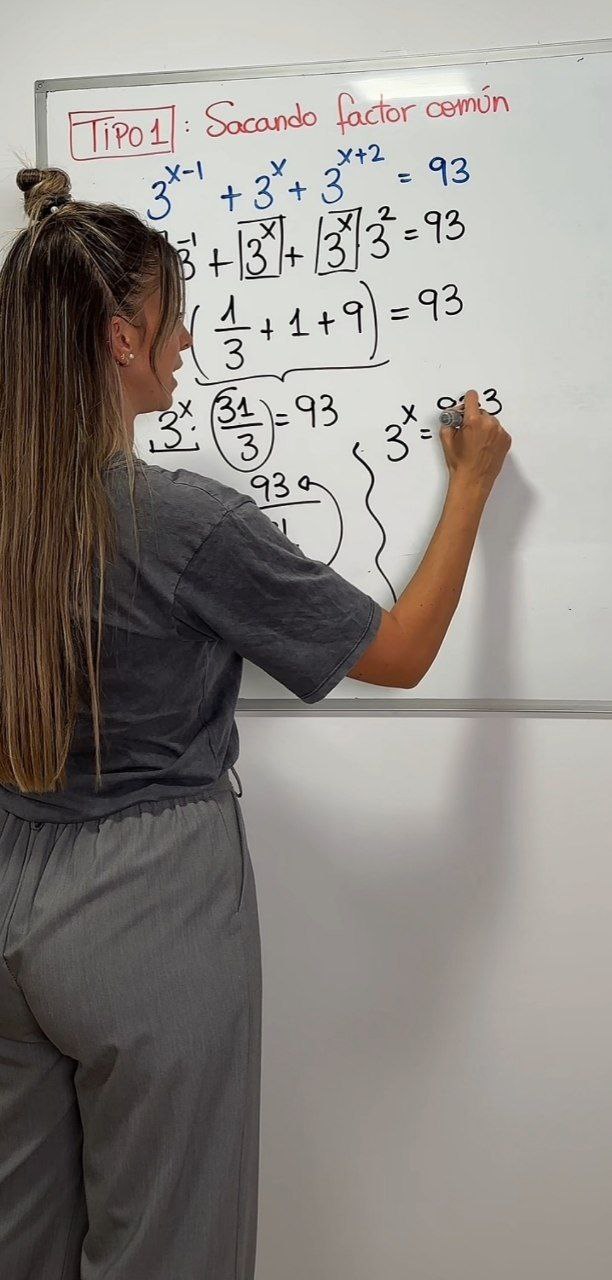 TIPO 1 : Sacando factor común
3^(x-1) + 3^x + 3^(x+2) = 93
3^(-1) + 3^x + 3^x 3^2 = 93
(1/3 + 1 + 9) = 93
3^x · 31/3 = 93
93
3^x =